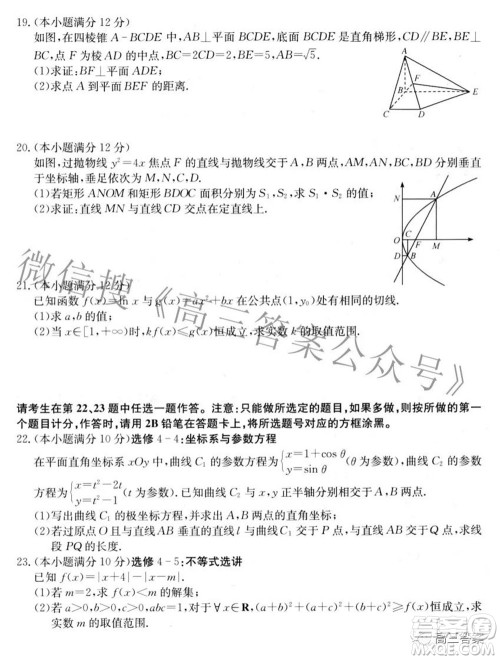 19.(本小题满分 12 分)
如图,在四棱锥 A-BCDE 中,AB⊥平面 BCDE,底面 BCDE 是直角梯形,CD∥BE,BE⊥
BC,点 F 为棱 AD 的中点,BC=2CD=2,BE=5,AB=√5.
(1)求证:BF⊥平面 ADE;
(2)求点 A 到平面 BEF 的距离.
A
F
B
E
C
D
20.(本小题满分 12 分)
如图,过抛物线 y²=4x 焦点 F 的直线与抛物线交于 A,B 两点,AM,AN,BC,BD 分别垂
直于坐标轴,垂足依次为 M,N,C,D.
(1)若矩形 ANOM 和矩形 BDOC 面积分别为 S₁,S₂,求 S₁·S₂ 的值;
(2)求证:直线 MN 与直线 CD 交点在定直线上.
N
A
O
C
F
M
D
B
21.(本小题满分 12 分)
已知函数 f(x)=ln x 与 g(x)=ax²+bx 在公共点(1,y₀)处有相同的切线.
(1)求 a,b 的值;
(2)当 x∈[1,+∞)时,kf(x)≤g(x)恒成立,求实数 k 的取值范围.
微信搜《高三答案公众号》
请考生在第 22、23 题中任选一题作答。注意:只能做所选定的题目,如果多做,则按所做的第一
个题目计分,作答时,请用 2B 铅笔在答题卡上,将所选题号对应的方框涂黑。
22.(本小题满分 10 分)选修 4-4:坐标系与参数方程
在平面直角坐标系 xOy 中,曲线 C₁ 的参数方程为{x=1+cos θ y=sin θ (θ 为参数),曲线 C₂ 的参数
方程为{x=t²-2t y=t²-1 (t 为参数),已知曲线 C₂ 与 x,y 正半轴分别相交于 A,B 两点.
(1)写出曲线 C₁ 的极坐标方程,并求出 A,B 两点的直角坐标;
(2)若过原点 O 且与直线 AB 垂直的直线 l 与曲线 C₁ 交于 P 点,与直线 AB 交于 Q 点,求线
段 PQ 的长度.
23.(本小题满分 10 分)选修 4-5:不等式选讲
已知 f(x)=|x+4|-|x-m|.
(1)若 m=2,求 f(x)<m 的解集;
(2)若 a>0,b>0,c>0,abc=1,对于∀x∈R,(a+b)²+(a+c)²+(b+c)²≥f(x)恒成立,求
实数 m 的取值范围.
高三答案